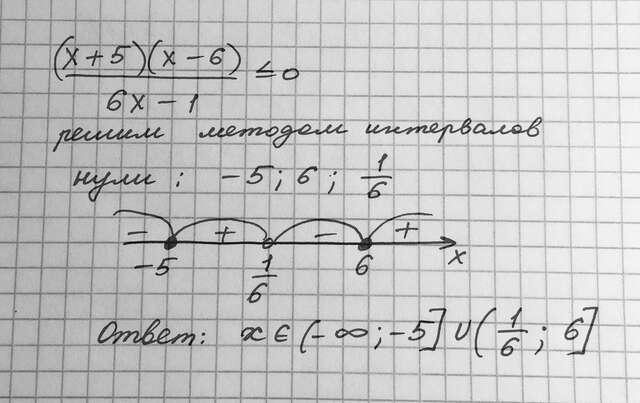 (x+5)(x-6)
6x-1
≤0
решим методом интервалов
нули : -5 ; 6 ; 1/6
- + - +
-5 1/6 6 x
Ответ: x∈(-∞;-5]∪(1/6; 6]